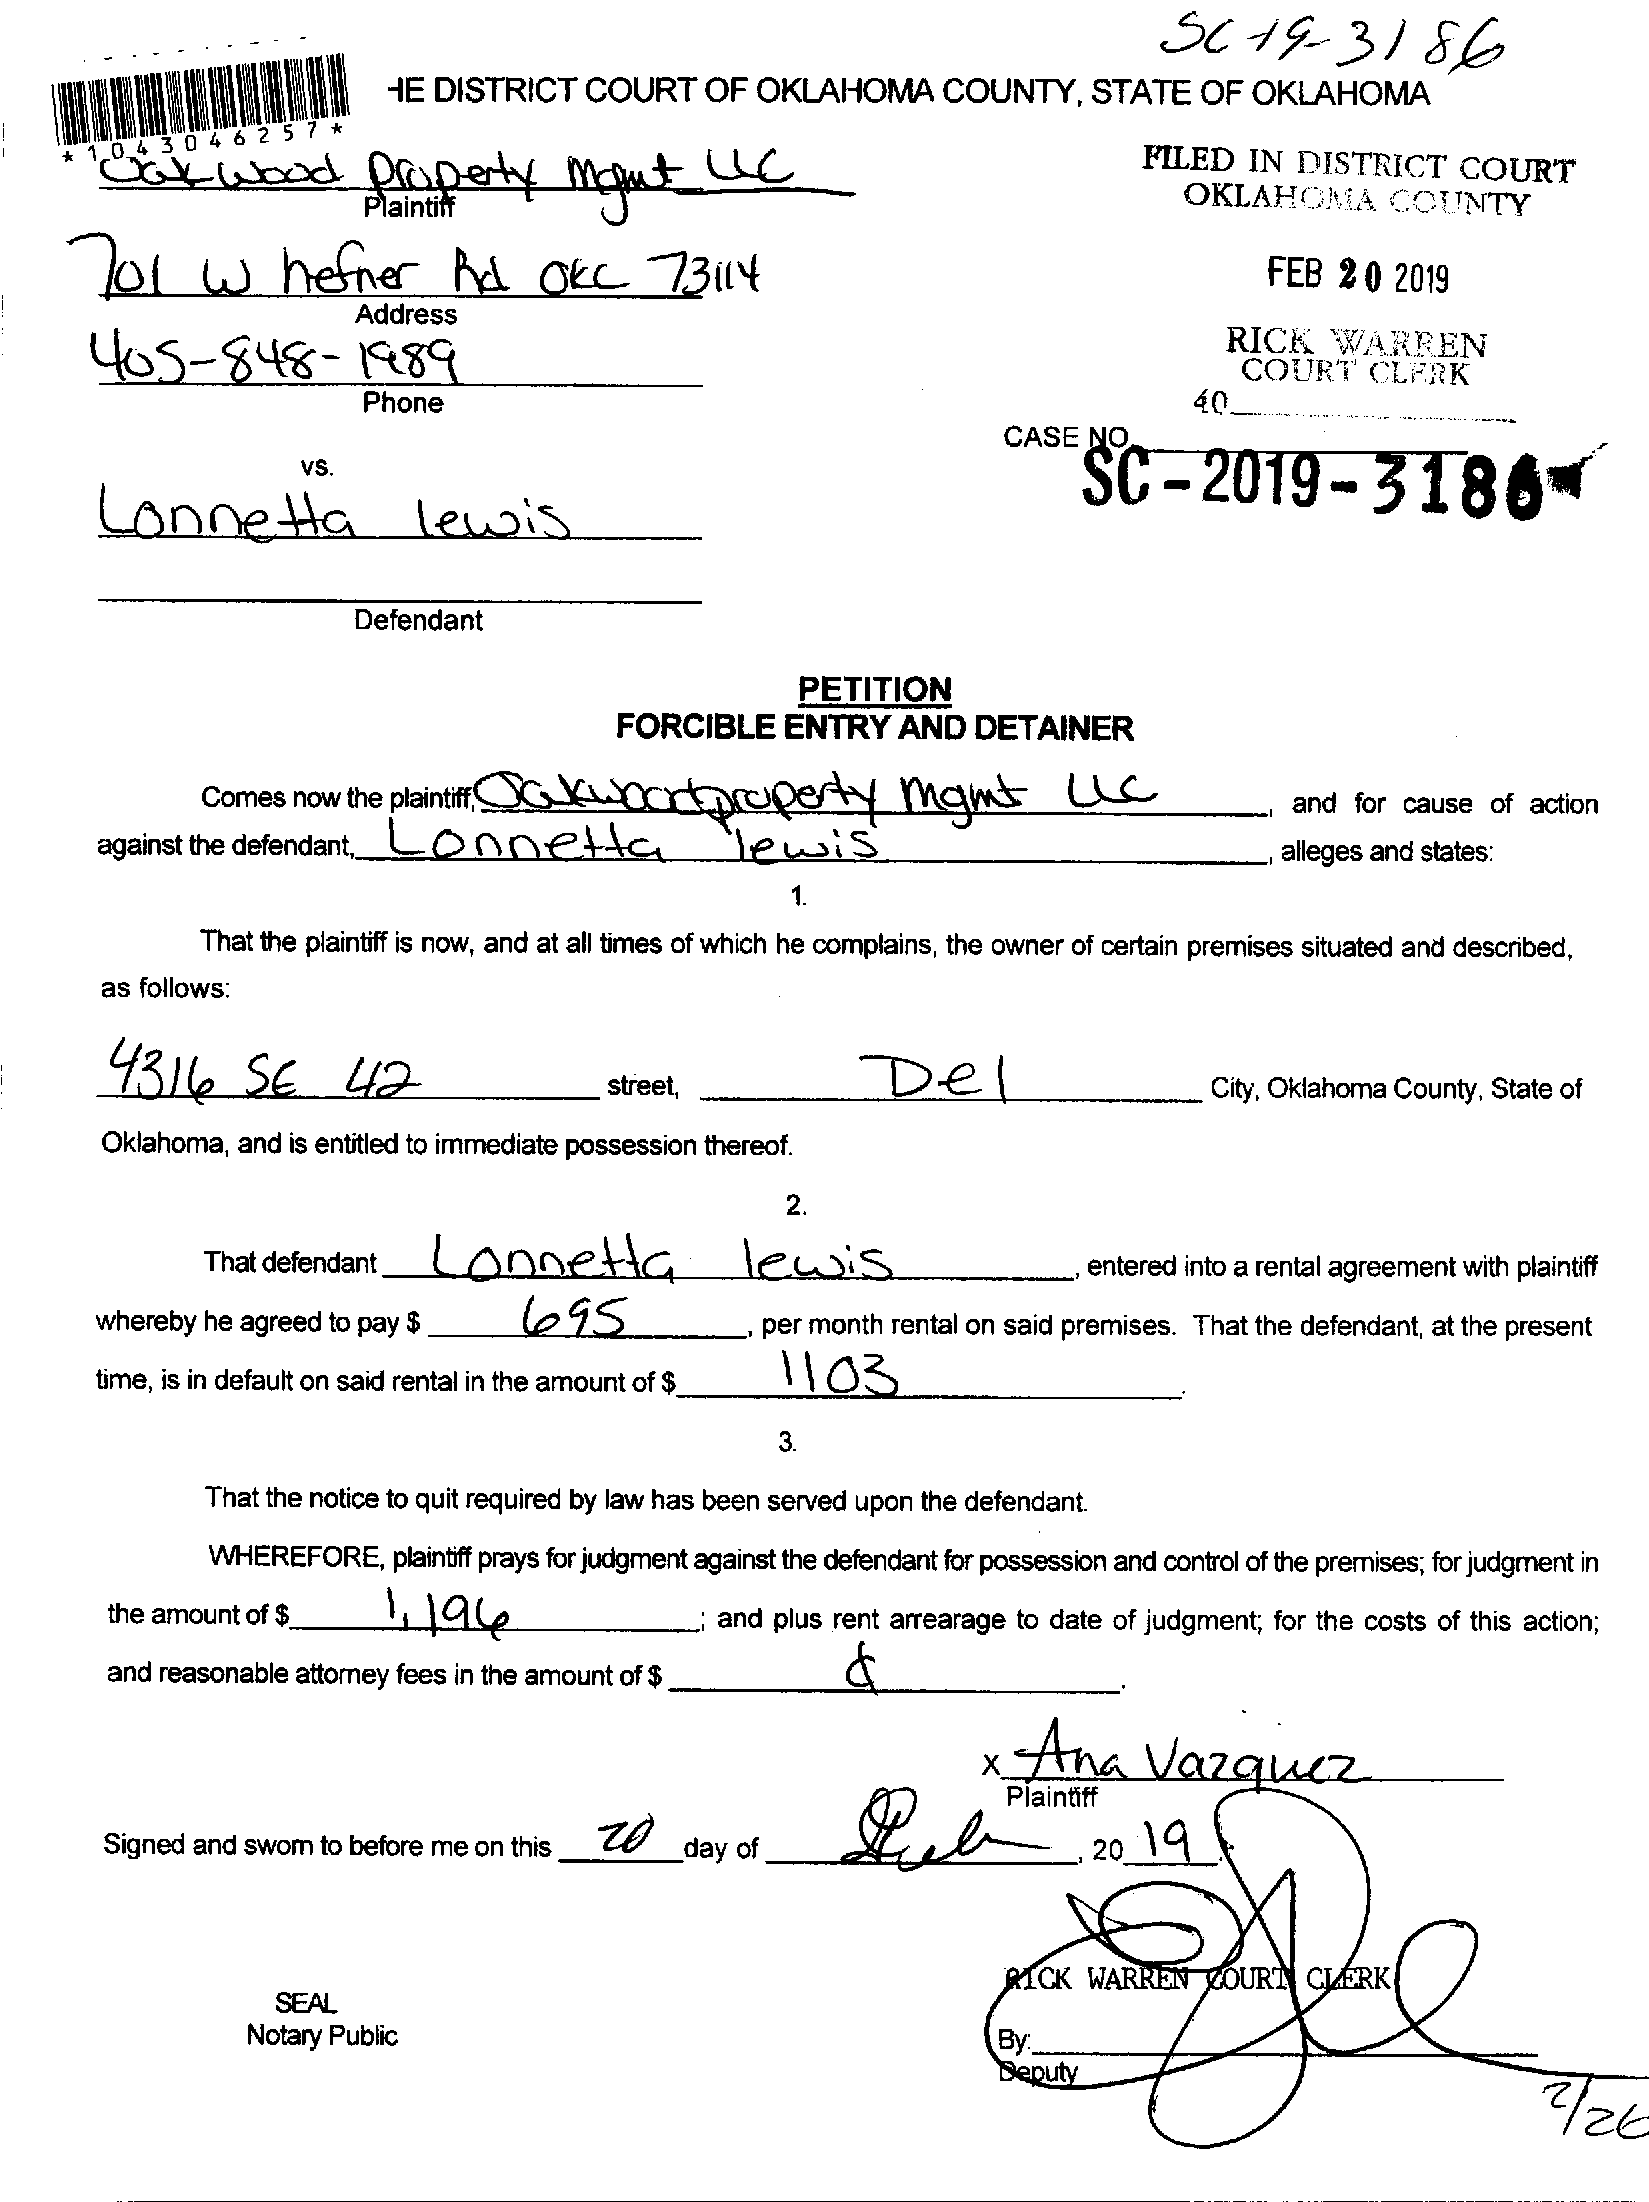 SC-19-3186
HE DISTRICT COURT OF OKLAHOMA COUNTY, STATE OF OKLAHOMA
* 1 0 4 3 0 4 6 2 5 7 *
Oakwood Property Mgmt LLC
Plaintiff
FILED IN DISTRICT COURT
OKLAHOMA COUNTY
701 W hefner Rd OKC 73114
Address
FEB 20 2019
405-848-1989
Phone
RICK WARREN
COURT CLERK
40
CASE NO.
SC-2019-3186
vs.
Lonnetta lewis
Defendant
PETITION
FORCIBLE ENTRY AND DETAINER
Comes now the plaintiff, Oakwood property Mgmt LLC, and for cause of action
against the defendant, Lonnetta lewis, alleges and states:
1.
That the plaintiff is now, and at all times of which he complains, the owner of certain premises situated and described,
as follows:
4316 SE 42 street, Del City, Oklahoma County, State of
Oklahoma, and is entitled to immediate possession thereof.
2.
That defendant Lonnetta lewis, entered into a rental agreement with plaintiff
whereby he agreed to pay $ 695, per month rental on said premises. That the defendant, at the present
time, is in default on said rental in the amount of $ 1103.
3.
That the notice to quit required by law has been served upon the defendant.
WHEREFORE, plaintiff prays for judgment against the defendant for possession and control of the premises; for judgment in
the amount of $ 1,196; and plus rent arrearage to date of judgment; for the costs of this action;
and reasonable attorney fees in the amount of $
x Ana Vazquez
Plaintiff
Signed and sworn to before me on this 20 day of Feb, 20 19.
RICK WARREN COURT CLERK
SEAL
Notary Public
By:
Deputy
2/26